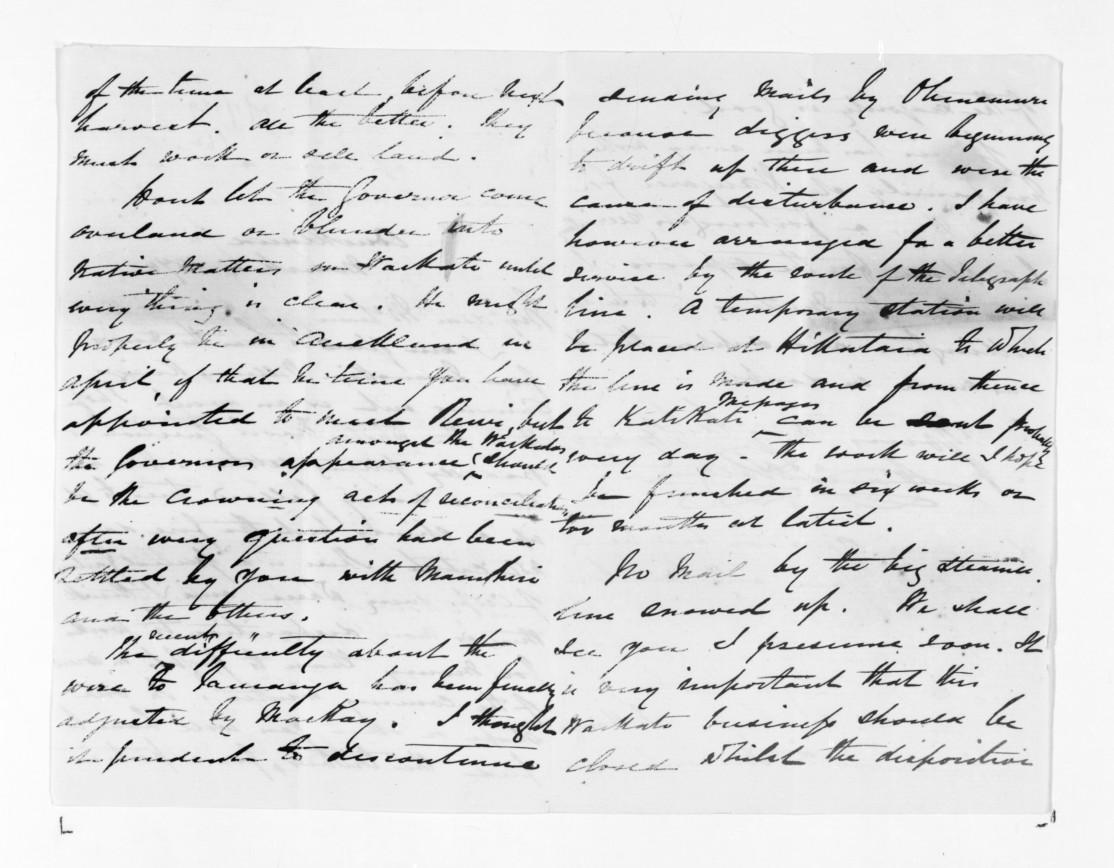 of the time at least before next
harvest. All the better. They
must work or sell land.
Dont let the Governor come
overland or blunder into
Native Matters in Waikato until
everything is clear. He might
properly be in Auckland in
April, if that be time you have
appointed to meet Rewi, but
the Governors appearance amongst the Waikatos should
be the crowning act of reconciliation,
after every question had been
settled by you with Manuhiri
and the others.
The recent "difficulty" about the
wire to Tauranga has been finally
adjusted by MacKay. I thought
it prudent to discontinue
sending Mails by Ohinemuri
because diggers were beginning
to drift up there and were the
cause of disturbance. I have
however arranged for a better
service by the route of the Telegraph
line. A temporary station will
be placed at Hikutaia to which
the line is made and from thence
to KatiKati Messages can be sent probably
every day - the work will I hope
be finished in six weeks or
two months at latest.
No Mail by the big steamer.
line snowed up. We shall
see you I presume soon. It
is very important that this
Waikato business should be
closed whilst the disposition